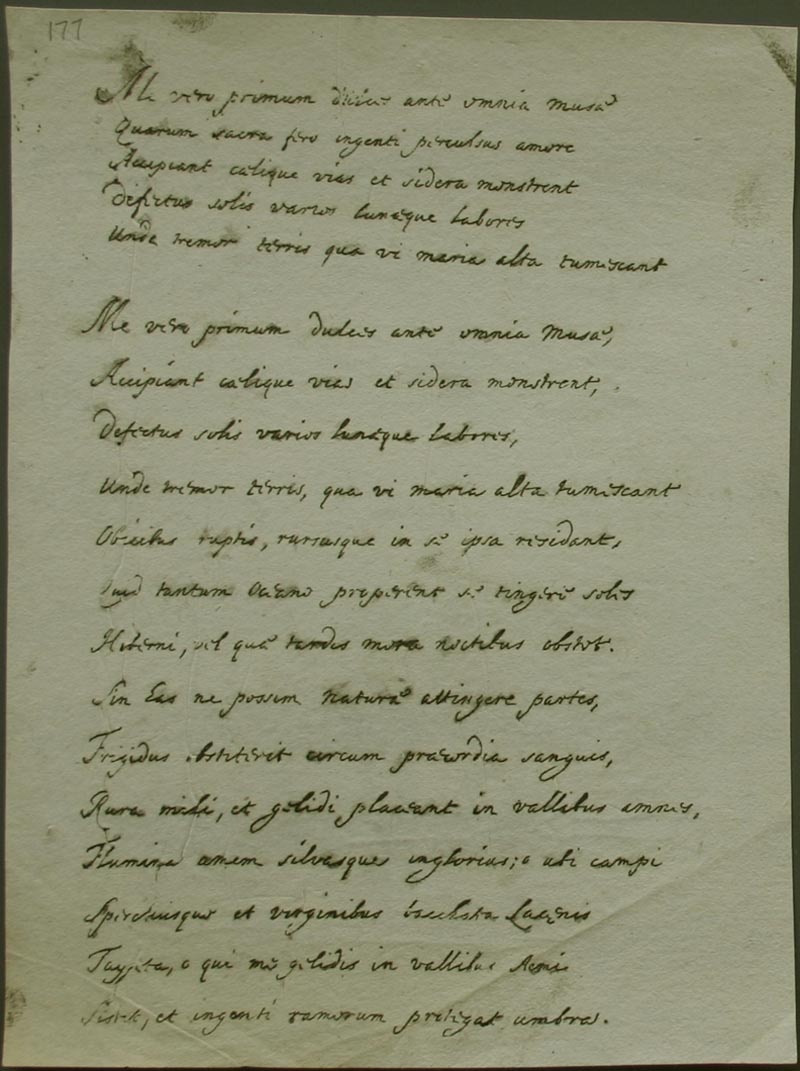 177
Me vero primum dulces ante omnia musæ
Quarum sacra fero ingenti perculsus amore
Accipiant cælique vias et sidera monstrent
Defectus solis varios lunæque labores
Unde tremor terris qua vi maria alta tumescant
Me vero primum dulces ante omnia Musæ,
Accipiant cælique vias et sidera monstrent,
Defectus solis varios lunæque labores,
Unde tremor terris, qua vi maria alta tumescant
Obicibus ruptis, rursusque in se ipsa residant,
Quid tantum Oceano properent se tingere soles
Hiberni, vel quæ tardis mora noctibus obstet.
Sin Eas ne possim naturæ attingere partes,
Frigidus obstiterit circum præcordia sanguis,
Rura mihi, et gelidi placeant in vallibus amnes,
Flumina amem silvasque inglorius; o ubi campi
Spercheiusque et virginibus bacchata Lacænis
Tayjeta, o qui me gelidis in vallibus Aemi
Sistet, et ingenti ramorum protegat umbra.